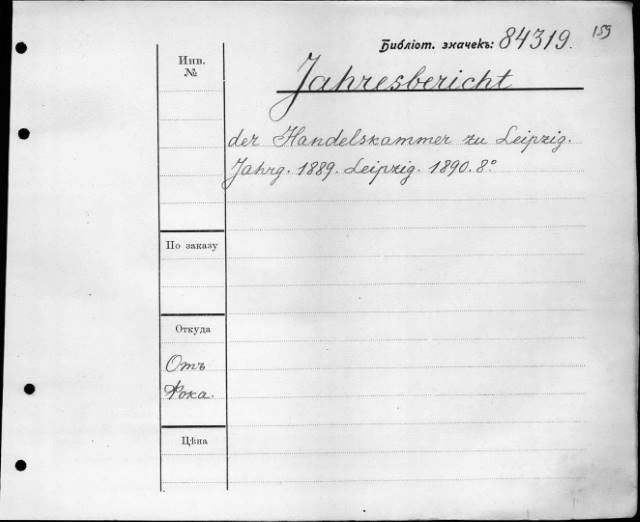 159
Библіот. значекъ: 84319.
Инв.
№
Jahresbericht
der Handelskammer zu Leipzig.
Jahrg. 1889. Leipzig. 1890. 8°
По заказу
Откуда
Отъ
Фока.
Цѣна